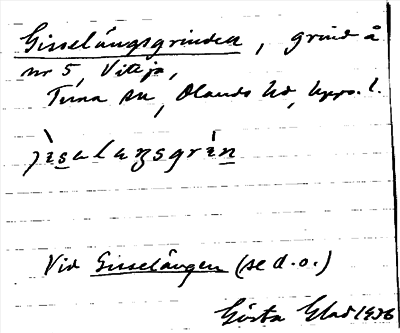 Gisselängsgrinden, grind å
nr 5, Viteja,
Tuna sn, Olands hd, Upps. l.
jìsalaŋsgrín
Vid Gisselängen (se d.o.)
Gösta Glad 1936